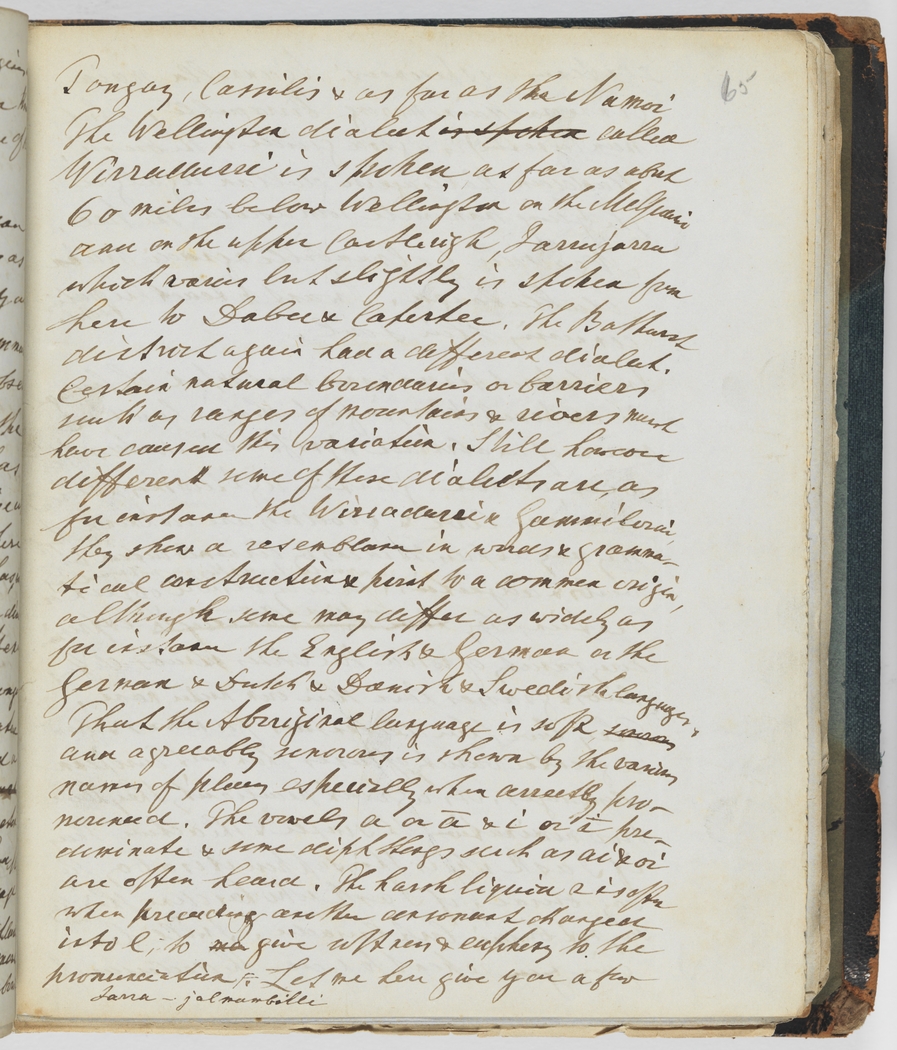 65
Tongoy, Cassilis & as far as the Namoi
The Wellington dialect is spoken called
Wirradurri is spoken as far as about
60 miles below Wellington on the McQuarie
and on the upper Castlereigh, Jarrujarra
which varies but slightly is spoken from
here to Dabee & Capertee. The Bathurst
district again had a different dialect.
Certain natural boundaries or barriers
such as ranges of mountains & rivers must
have caused this variation. Still however
different some of these dialects are, as
for instance the Wirradurri & Gammilaroi,
they show a resemblance in words & gramma-
tical construction & point to a common origin,
although some may differ as widely as
for instance the English & German or the
German & Dutch & Danish & Swedish languages.
That the Aboriginal language is soft sonorous
and agreeably sonorous is shown by the various
names of places especially when correctly pro-
nounced. The vowels a or ā & i or ī pre-
dominate & some diphthongs such as ai & oi
are often heard. The harsh liquid r is often
when preceding another consonant changed
into l, to give softness & euphony to the
pronunciation: Let me here give you a few
Jarra – jalmambilli